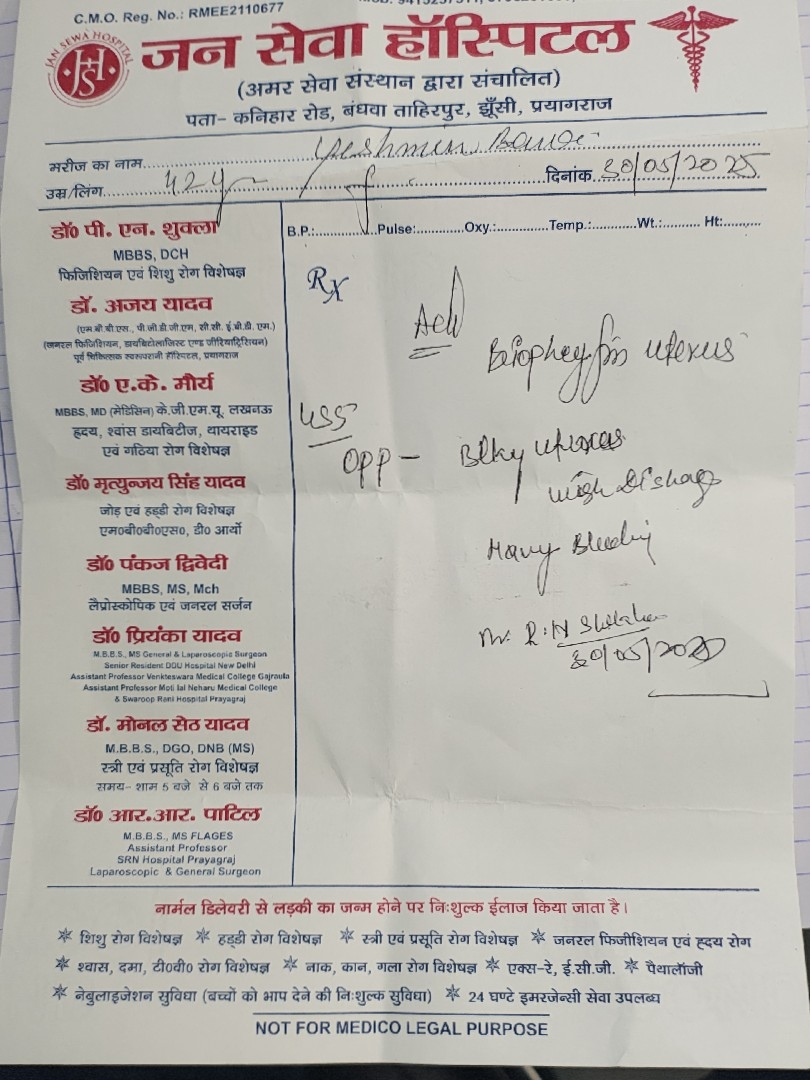 C.M.O. Reg. No.: RMEE2110677
JAN SEWA HOSPITAL
JSH
जन सेवा हॉस्पिटल
(अमर सेवा संस्थान द्वारा संचालित)
पता- कनिहार रोड, बंधवा ताहिरपुर, झूँसी, प्रयागराज
मरीज का नाम
उम्र/लिंग 42y f दिनांक 30/05/2025
डॉ० पी. एन. शुक्ला
MBBS, DCH
फिजिशियन एवं शिशु रोग विशेषज्ञ
डॉ. अजय यादव
(एम.बी.बी.एस., पी.जी.डी.जी.एम, सी.सी. ई.बी.डी. एम.)
(जनरल फिजिशियन, डायबिटोलाजिस्ट एण्ड जीरियाट्रिसियन)
पूर्व चिकित्सक स्वरूपरानी हॉस्पिटल, प्रयागराज
डॉ० ए.के. मौर्य
MBBS, MD (मेडिसिन) के.जी.एम.यू. लखनऊ
ह्रदय, श्वांस डायबिटीज, थायराइड
एवं गठिया रोग विशेषज्ञ
डॉ० मृत्युन्जय सिंह यादव
जोड़ एवं हड्डी रोग विशेषज्ञ
एम०बी०बी०एस०, डी० आर्थो
डॉ० पंकज द्विवेदी
MBBS, MS, Mch
लैप्रोस्कोपिक एवं जनरल सर्जन
डॉ० प्रियंका यादव
M.B.B.S., MS General & Laparoscopic Surgeon
Senior Resident DDU Hospital New Delhi
Assistant Professor Venkteswara Medical College Gajroula
Assistant Professor Moti lal Neharu Medical College
& Swaroop Rani Hospital Prayagraj
डॉ. मोनल सेठ यादव
M.B.B.S., DGO, DNB (MS)
स्त्री एवं प्रसूति रोग विशेषज्ञ
समय- शाम 5 बजे से 6 बजे तक
डॉ० आर.आर. पाटिल
M.B.B.S., MS FLAGES
Assistant Professor
SRN Hospital Prayagraj
Laparoscopic & General Surgeon
B.P.: Pulse: Oxy.: Temp.: Wt.: Ht:
Rx
uterus
USS
OPP -
Bleeding
30/05/2025
नार्मल डिलेवरी से लड़की का जन्म होने पर निःशुल्क ईलाज किया जाता है।
✳ शिशु रोग विशेषज्ञ ✳ हड्डी रोग विशेषज्ञ ✳ स्त्री एवं प्रसूति रोग विशेषज्ञ ✳ जनरल फिजीशियन एवं ह्रदय रोग
✳ श्वास, दमा, टी०वी० रोग विशेषज्ञ ✳ नाक, कान, गला रोग विशेषज्ञ ✳ एक्स-रे, ई.सी.जी. ✳ पैथालॉजी
✳ नेबुलाइजेशन सुविधा (बच्चों को भाप देने की निःशुल्क सुविधा) ✳ 24 घण्टे इमरजेन्सी सेवा उपलब्ध
NOT FOR MEDICO LEGAL PURPOSE